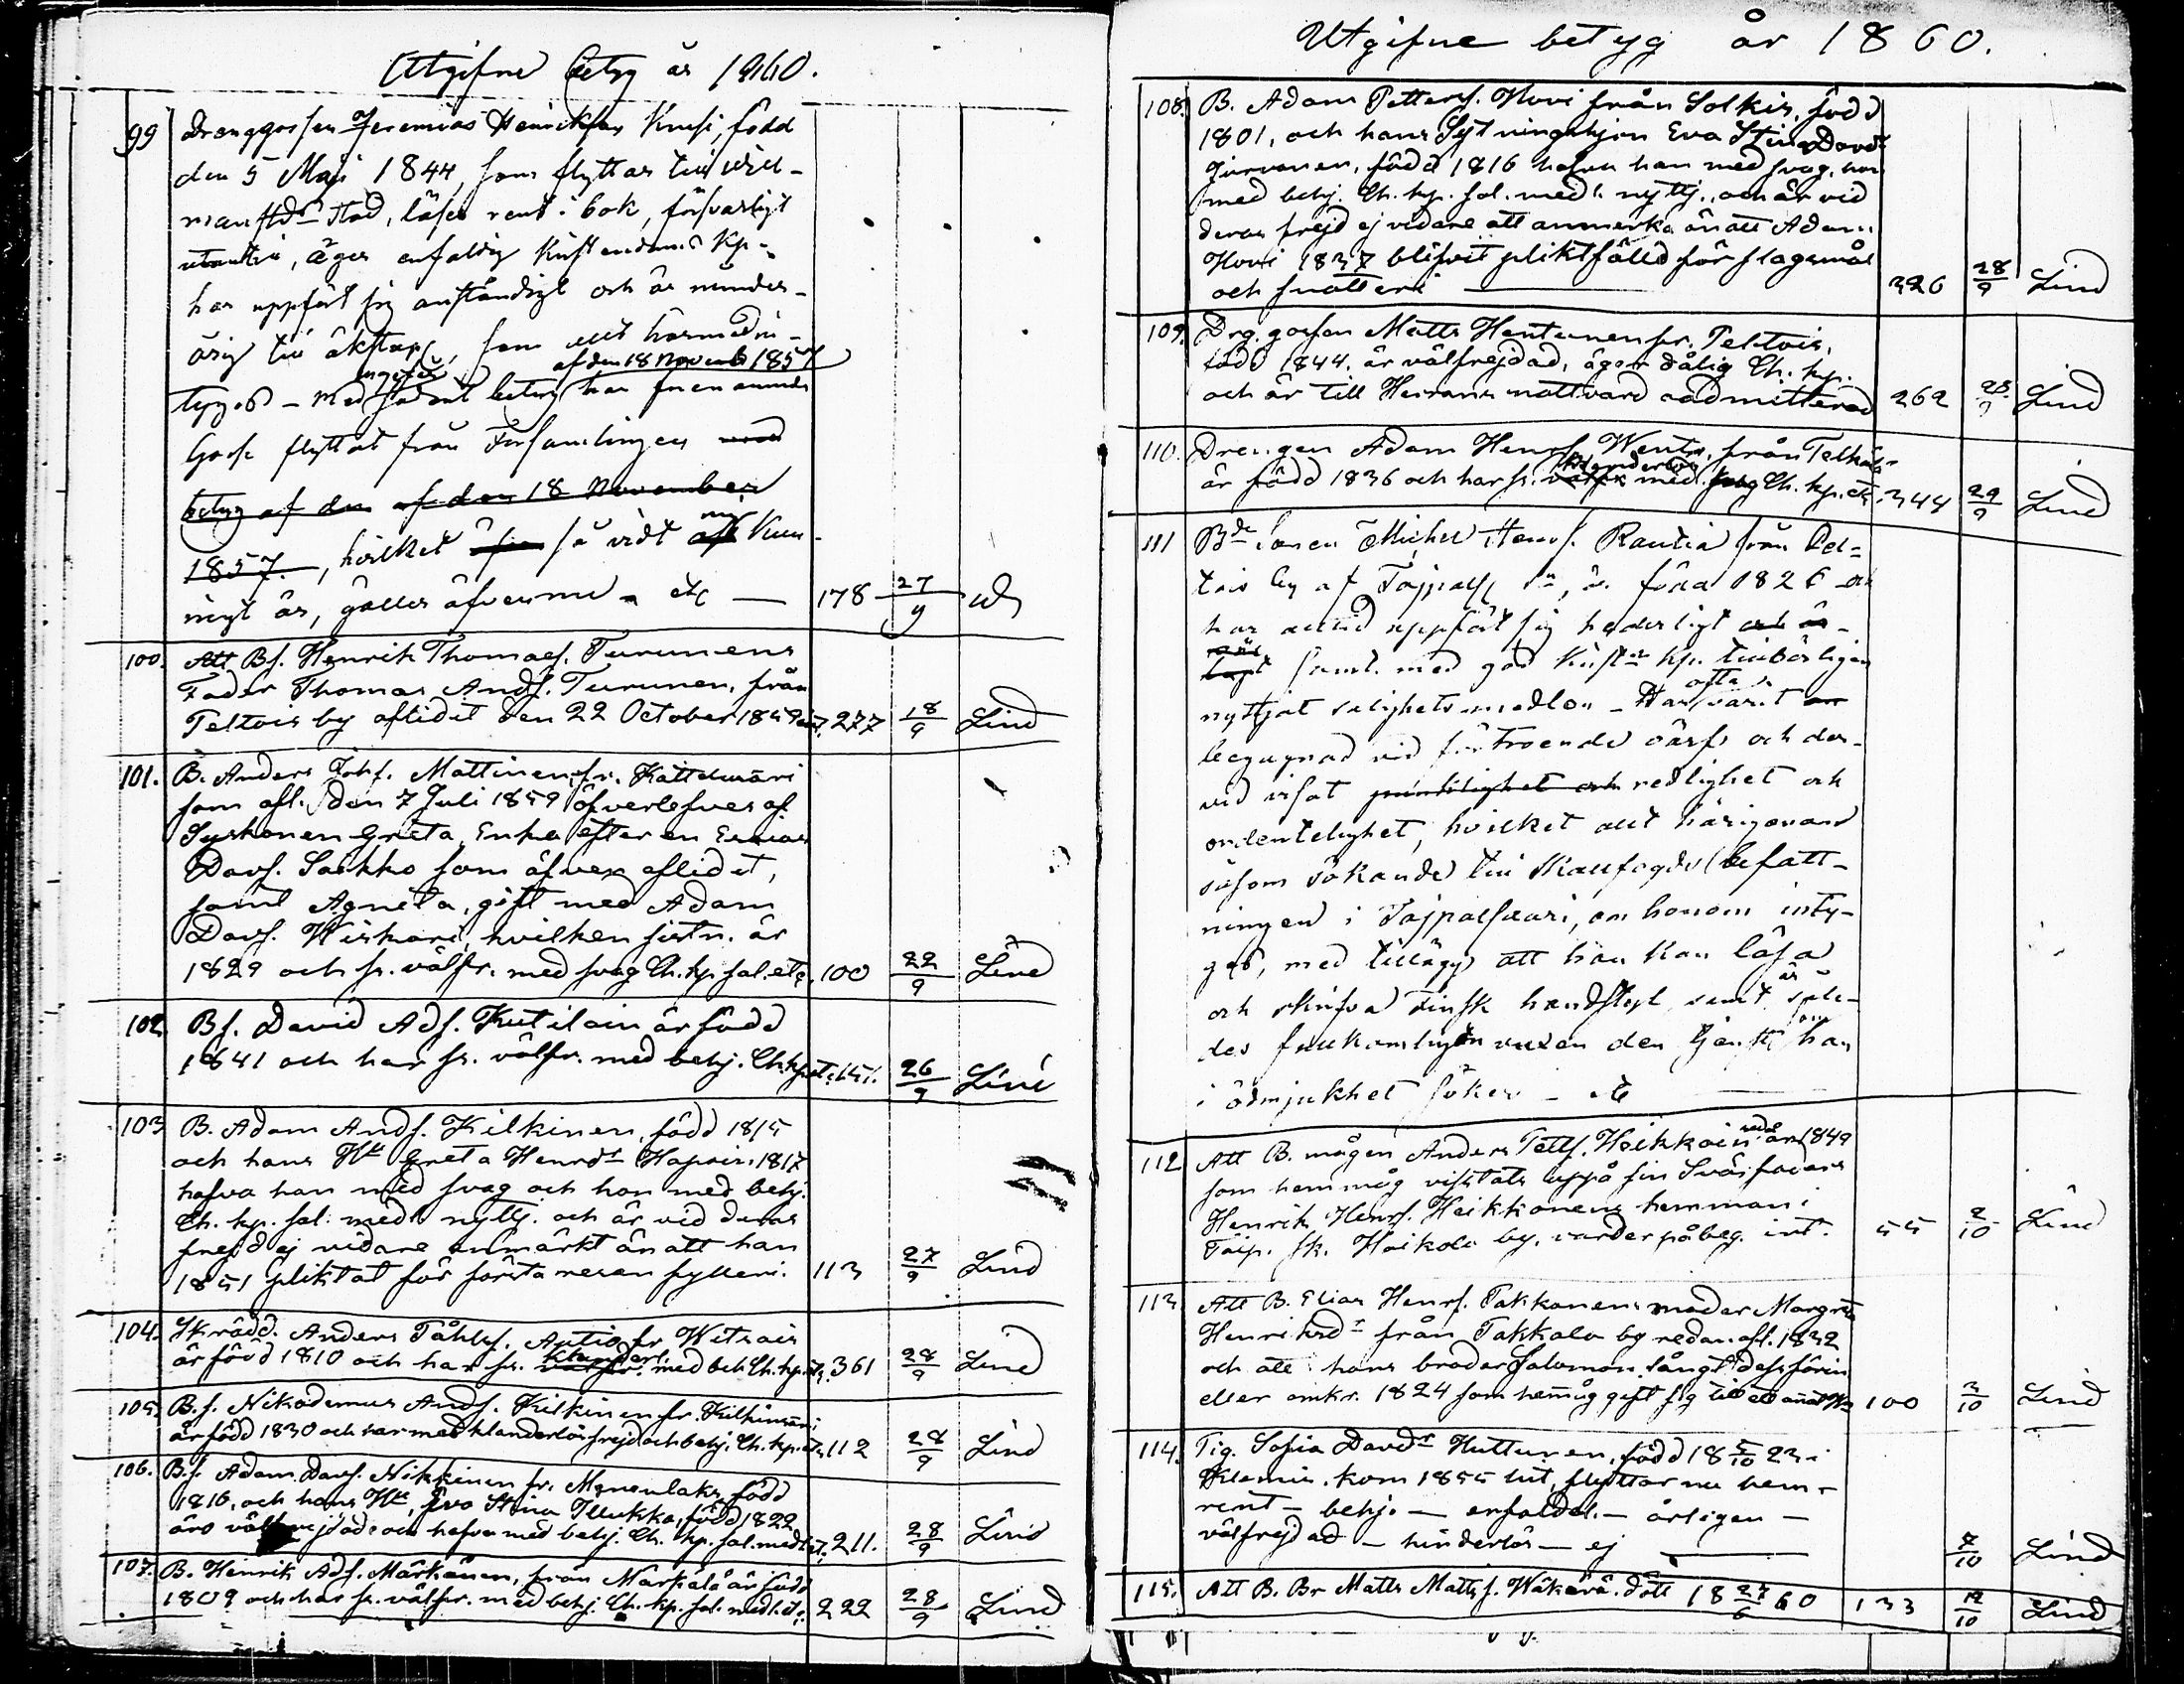 Utgifne betyg år 1860.
99 Drenggossen Jeremias Henriksson Kuusi, född
den 5 Maji 1844, som flyttar till
stad, läser rent i bok, försvarligt
utantill, äger enfaldig Kristendoms Kp.
har uppfört sig anständigt och är minder-
årig till äktenskap, som allt härmedin-
af den 18 Novemb 1857
tygas – Med betyg har
Gosse flyttat från Församlingen med
betyg af den af den 18 November
1857, hvilket så vidt mig Kun-
nigt är, gäller äfven nu – etc — 178 27/9
100. Att Bs. Henrik Thomass. Turunens
Fader Thomas Ands. Turunen, från
Teltois by aflidit den 22 October 1859 277 18/9 Lind
101. B. Anders Johs. Mattinen, fr. Kattelusaari
som afl. den 7 Juli 1859 öfverlefves af
Syskonen Greta, Enka efter en
Davs. Saikko som äfven aflidit,
samt Agneta, gift med Adam
Davs. Wiskari, hvilken sistn. är
1829 och fr. välfr. med svag Ch. kp. sal. etc. 100 22/9 Lind
102. Bs. David Ads. Kutilain är född
1841 och har fr. välfr. med behj. Ch. kp. etc. 151. 26/9 Lind
103 B. Adam Ands. Kilkinen, född 1815
och hans Hu Greta Henrdr Hapoin. 1817
hafva han med svag och hon med behj.
Ch. kp. sal. medl. nyttj. och är vid deras
frejd ej vidare anmärkt än att han
1851 pliktat för första resan fylleri. 113 27/9 Lind
104. Skrädd. Anders Påhls. Autio fr. Witsais
klanderl.
är född 1810 och har fr. välfr. med beh. Ch. kp. etc. 361 28/9 Lind
105. B. s. Nikodemus Ands. Kilkinen fr. Kilkinsaari
är född 1830 och har med klanderlös frejd och behj. Ch. kp. etc. 112 28/9 Lind
106. B. s. Adam Davs. Nikkinen fr. Mynenlaks, född
1816, och hans Hu, Eva Stina Tllukka, född 1822
äro välfrejdade och hafva med behj. Ch. kp. sal. medl. etc. 211. 28/9 Lind
107. B. Henrik Ads. Märkänen, från Markala är född
1809 och har fr. välfr. med behj. Ch. kp. sal. medl. etc. 222 28/9 Lind
Utgifne betyg år 1860.
108. B. Adam Petters. Hovi från Solkis, född
1801, och hans Sytningshjon Eva Stina Davdr
Jurvanen, född 1816 hafva han med svag, hon
med behj. Ch. kp. sal. medl. nyttj., och är vid
deras frejd ej vidare att anmerka än att Adam
Hovi 1837 blifvit pliktfälld för slagsmål
och snatteri — 326 28/9 Lind
109. Drg. gossen Matts Hentunen fr. Teltois,
född 1844, är välfrejdad, äger dålig Ch. kp.
och är till Herrans nattvard admitterad 262 28/9 Lind
110. Drengen Adam Henrs. Wento, från
klanderlös
är född 1836 och har fr. välfr. med svag Ch. kp. etc. 344 29/9 Lind
111 Bde sonen Michel Henrs. Rautia från Pel-
tois by af född 1826 och
har alltid uppfört sig hederligt och är-
ligt samt med god Krist. Kp. tillbörligen
ofta
nyttjat salighetsmedlen – Har varit
begagnad vid förtroende värf och der-
vid visat punktlighet och redlighet och
ordentelighet, hvilket allt härigenom
såsom sökande till Skallfogde befatt-
ningen i Taipalsaari, om honom inty-
gas, med tillägg att han kan läsa
och skrifva Finsk handstyl samt är såle-
des fullkomligen vuxen den tjenst som han
i ödmjukhet söker – etc —
112 Att B. mågen Anders Petts. Heikkoin redan är 1849
som hemmåg vistats uppå sin Svärfaders
Henrik Henrs. Heikkonens hemman i
Taip. sk. Haikola by, varder påbeg. int. 55 2/10 Lind
113. Att B. Elias Henrs. Pakkanens moder Margreta
Henriksdr från Pakkala by redan afl. 1832
och att hans broder Salomon långt dessförin
eller omkr. 1824 som hemmåg gift sig till ett annat 100 3/10 Lind
114. Pig. Sofia Davdr Hutturen, född 18 5/10 23 i
Klemis. kom 1855 hit, flyttar nu hem –
rent – behj. — enfaldel. — årligen —
välfrejdad – hinderlös – ej — 7/10 Lind
115. Att B. Br Matts Matts s. Wäkävä dött 18 27/6 60 133 12/10 Lind